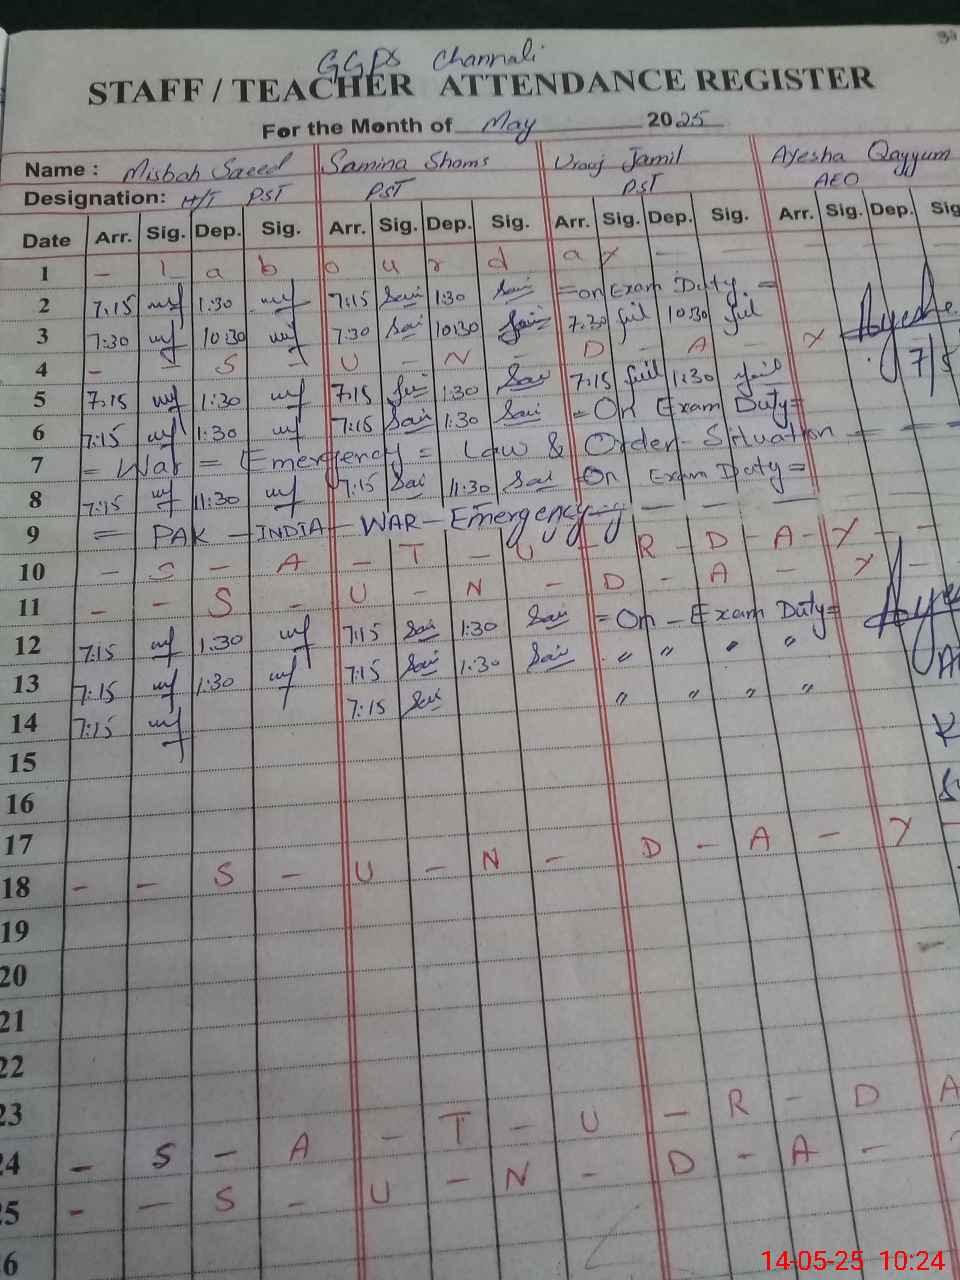 GGPS Channali
STAFF / TEACHER ATTENDANCE REGISTER
For the Month of May 2025
Name : Misbah Saeed Samina Shams Uraaj Jamil Ayesha Qayyum
Designation: H/T PST PST PST AEO
Date Arr. Sig. Dep. Sig. Arr. Sig. Dep. Sig. Arr. Sig. Dep. Sig. Arr. Sig. Dep. Sig
1 - L a b o u r d a y - -
2 7:15 1:30 7:15 1:30 = on Exam Duty. =
3 7:30 10:30 7:30 10:30 7:30 10:30
4 - - S - U - N - D - A - Y
5 7:15 1:30 7:15 1:30 7:15 1:30 7/5
6 7:15 1:30 7:15 1:30 = On Exam Duty=
7 = War = Emergency = Law & Order - Situation = = = =
8 7:15 11:30 7:15 11:30 On Exam Duty =
9 = PAK - INDIA - WAR - Emergency - - - -
10 - S - A - T - U - R - D - A - Y - -
11 - - S - U - N - D - A - Y -
12 7:15 1:30 7:15 1:30 = On - Exam Duty=
13 7:15 1:30 7:15 1:30 " " " "
14 7:15 7:15 " " " "
15
16
17
18 - - S - U - N - D - A - Y -
19
20
21
22
23
24 - S - A - T - U - R - D A
25 - - S - U - N - D - A -
6
14-05-25 10:24